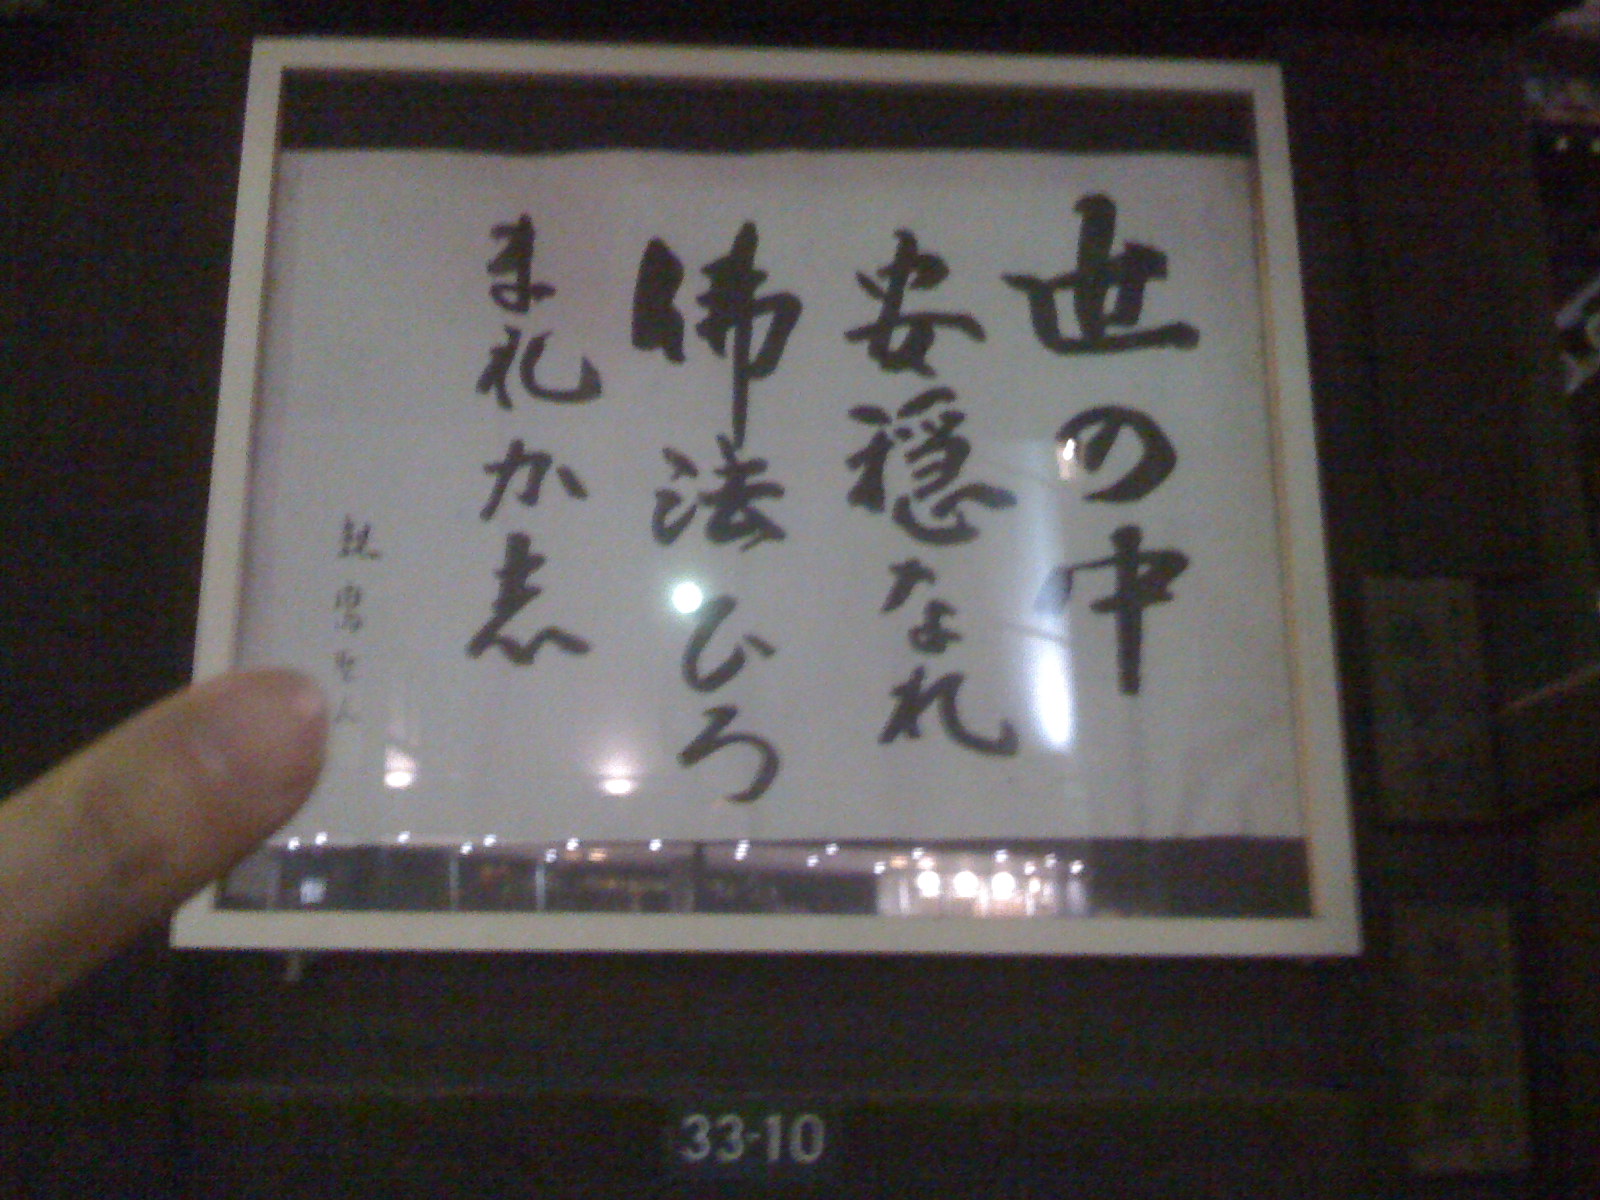 世の中
安穏なれ
佛法ひろ
まれかし
親鸞聖人
33-10